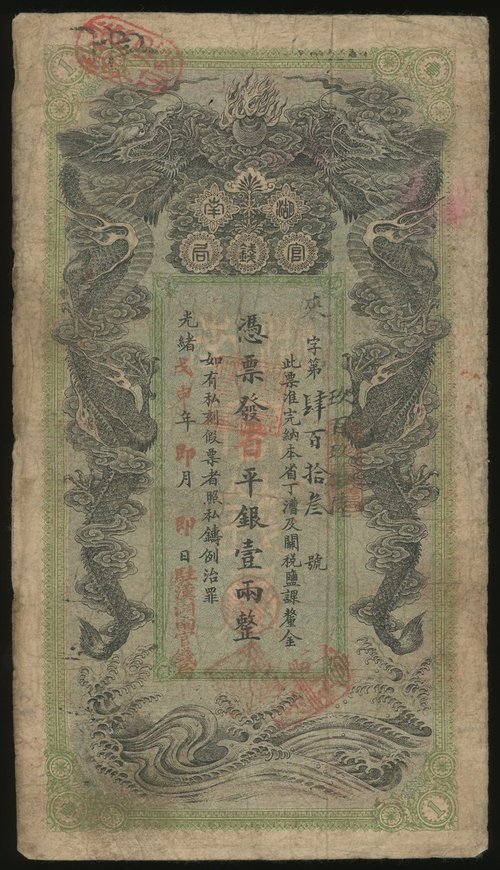 1
湖南
官錢局
字第肆百拾叁號
此票准完納本省丁漕及關税鹽課釐金
憑票發省平銀壹兩整
如有私刻假票者照私鑄例治罪
光緒戊申年 即月 即日 駐漢湖南官錢
1
1